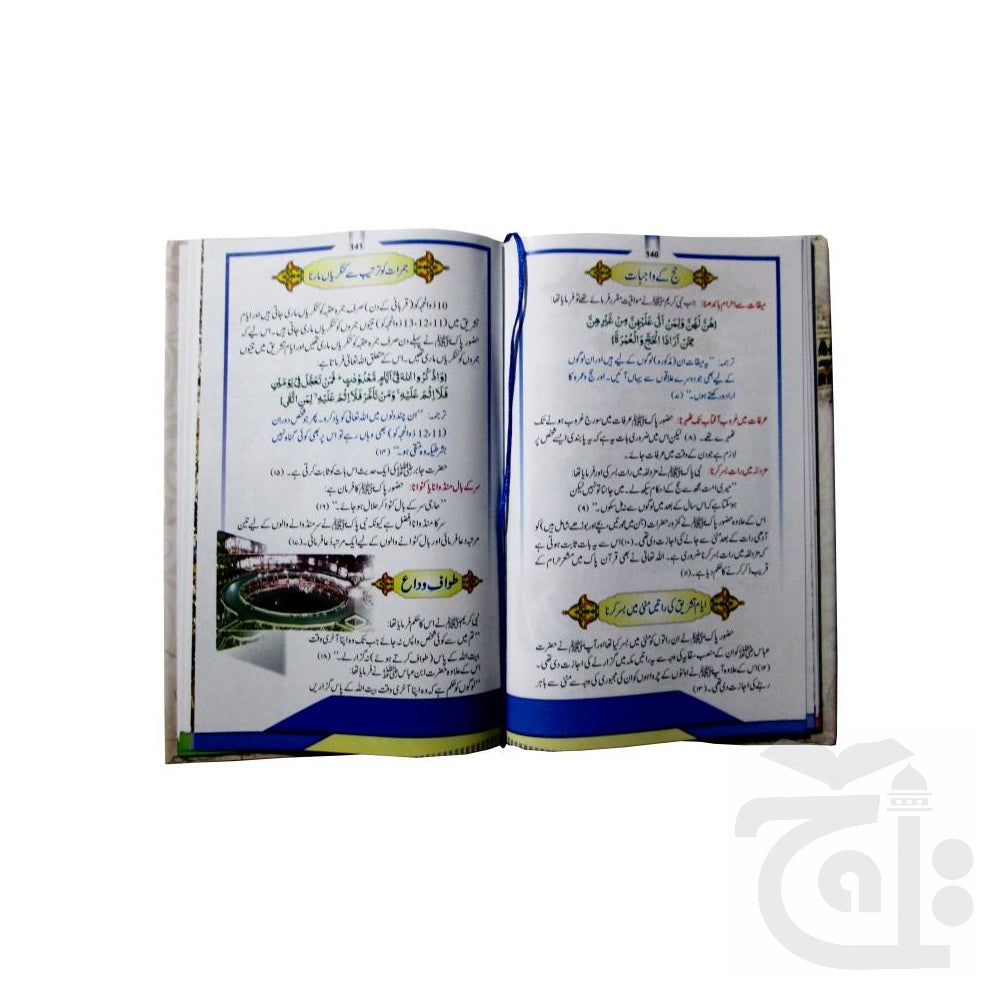 140
حج کے واجبات
میقات سے احرام باندھنا: جب نبی کریم ﷺ نے مواقیت مقرر فرمائے تھے تو فرمایا تھا:
(هُنَّ لَهُنَّ وَلِمَنْ اَتٰى عَلَيْهِنَّ مِنْ غَيْرِهِنَّ
مِمَّنْ اَرَادَ الْحَجَّ وَالْعُمْرَةَ)
ترجمہ: "یہ میقات ان (مذکورہ) لوگوں کے لیے ہیں اور ان لوگوں
کے لیے بھی جو دوسرے علاقوں سے یہاں آئیں۔ اور حج و عمرہ کا
ارادہ رکھتے ہوں۔" (۷)
عرفات میں غروب آفتاب تک ٹھہرنا: حضور پاک ﷺ عرفات میں سورج غروب ہونے تک
ٹھہرے تھے۔ (۸) لیکن اس میں ضروری بات یہ ہے کہ یہ پابندی ایسے شخص پر
لازم ہے جو دن کے وقت میں عرفات جائے۔
مزدلفہ میں رات بسر کرنا: نبی پاک ﷺ نے مزدلفہ میں رات بسر کی اور فرمایا تھا:
"میری امت مجھ سے حج کے احکام سیکھ لے۔ میں جانتا تو نہیں لیکن
ہو سکتا ہے کہ اس سال کے بعد میں لوگوں سے نہ مل سکوں۔" (۹)
اس کے علاوہ حضور پاک ﷺ نے کمزور حضرات (جن میں عورتیں، بچے اور بوڑھے شامل ہیں) کو
آدھی رات کے بعد منٰی سے جانے کی اجازت دی تھی۔ (۱۰) اس سے یہ بات ثابت ہوتی ہے
کہ مزدلفہ میں رات بسر کرنا ضروری ہے۔ اللہ تعالٰی نے بھی قرآن پاک میں مشعر حرام کے
قریب ذکر کرنے کا حکم دیا ہے۔ (۱۱)
ایام تشریق کی راتیں منٰی میں بسر کرنا
حضور پاک ﷺ نے ان راتوں کو منٰی میں بسر کیا تھا اور آپ ﷺ نے حضرت
عباس ؓ کو ان کے منصب سقایہ کی وجہ سے یہ راتیں مکہ میں گزارنے کی اجازت دی تھی۔
(۱۲) اس کے علاوہ آپ ﷺ نے اونٹوں کے چرواہوں کو ان کی مجبوری کی وجہ سے منٰی سے باہر
رہنے کی اجازت دی تھی۔ (۱۳)
141
جمرات کو ترتیب سے کنکریاں مارنا
10 ذوالحجہ کو (قربانی کے دن) صرف جمرہ عقبہ کو کنکریاں ماری جاتی ہیں اور ایام
تشریق میں (11،12،13 ذوالحجہ کو) تینوں جمروں کو کنکریاں ماری جاتی ہیں۔ اس لیے کہ
حضور پاک ﷺ نے پہلے دن صرف جمرہ عقبہ کو کنکریاں ماری تھیں اور ایام تشریق میں تینوں
جمروں کو کنکریاں ماری تھیں۔ اس کے متعلق اللہ تعالٰی فرماتا ہے:
(وَاذْكُرُوا اللّٰهَ فِيْٓ اَيَّامٍ مَّعْدُوْدٰتٍ ۚ فَمَنْ تَعَجَّلَ فِيْ يَوْمَيْنِ
فَلَآ اِثْمَ عَلَيْهِ ۚ وَمَنْ تَاَخَّرَ فَلَآ اِثْمَ عَلَيْهِ ۙ لِمَنِ اتَّقٰى)
ترجمہ: "ان چند دنوں میں اللہ تعالٰی کو یاد کرو۔ پھر جو شخص دوران
(11،12 ذوالحجہ کو) بھی وہاں رہے تو اس پر بھی کوئی گناہ نہیں
بشرطیکہ وہ متقی ہو۔" (۱۴)
حضرت جابر ؓ کی ایک حدیث اس بات کو ثابت کرتی ہے۔ (۱۵)
سر کے بال منڈوانا یا کٹوانا: حضور پاک ﷺ کا فرمان ہے:
"حاجی سر کے بال کٹوا کر حلال ہو جائے۔" (۱۶)
سر کا منڈوانا افضل ہے کیونکہ نبی پاک ﷺ نے سر منڈوانے والوں کے لیے تین
مرتبہ دعا فرمائی اور بال کٹوانے والوں کے لیے ایک مرتبہ دعا فرمائی۔ (۱۷)
طواف وداع
نبی کریم ﷺ نے اس کا حکم فرمایا تھا:
"تم میں سے کوئی شخص واپس نہ جائے جب تک وہ اپنا آخری وقت
بیت اللہ کے پاس (طواف کرتے ہوئے) نہ گزار لے۔" (۱۸)
اس کے علاوہ حضرت ابن عباس ؓ نے فرمایا تھا:
"لوگوں کو حکم ہے کہ وہ اپنا آخری وقت بیت اللہ کے پاس گزاریں